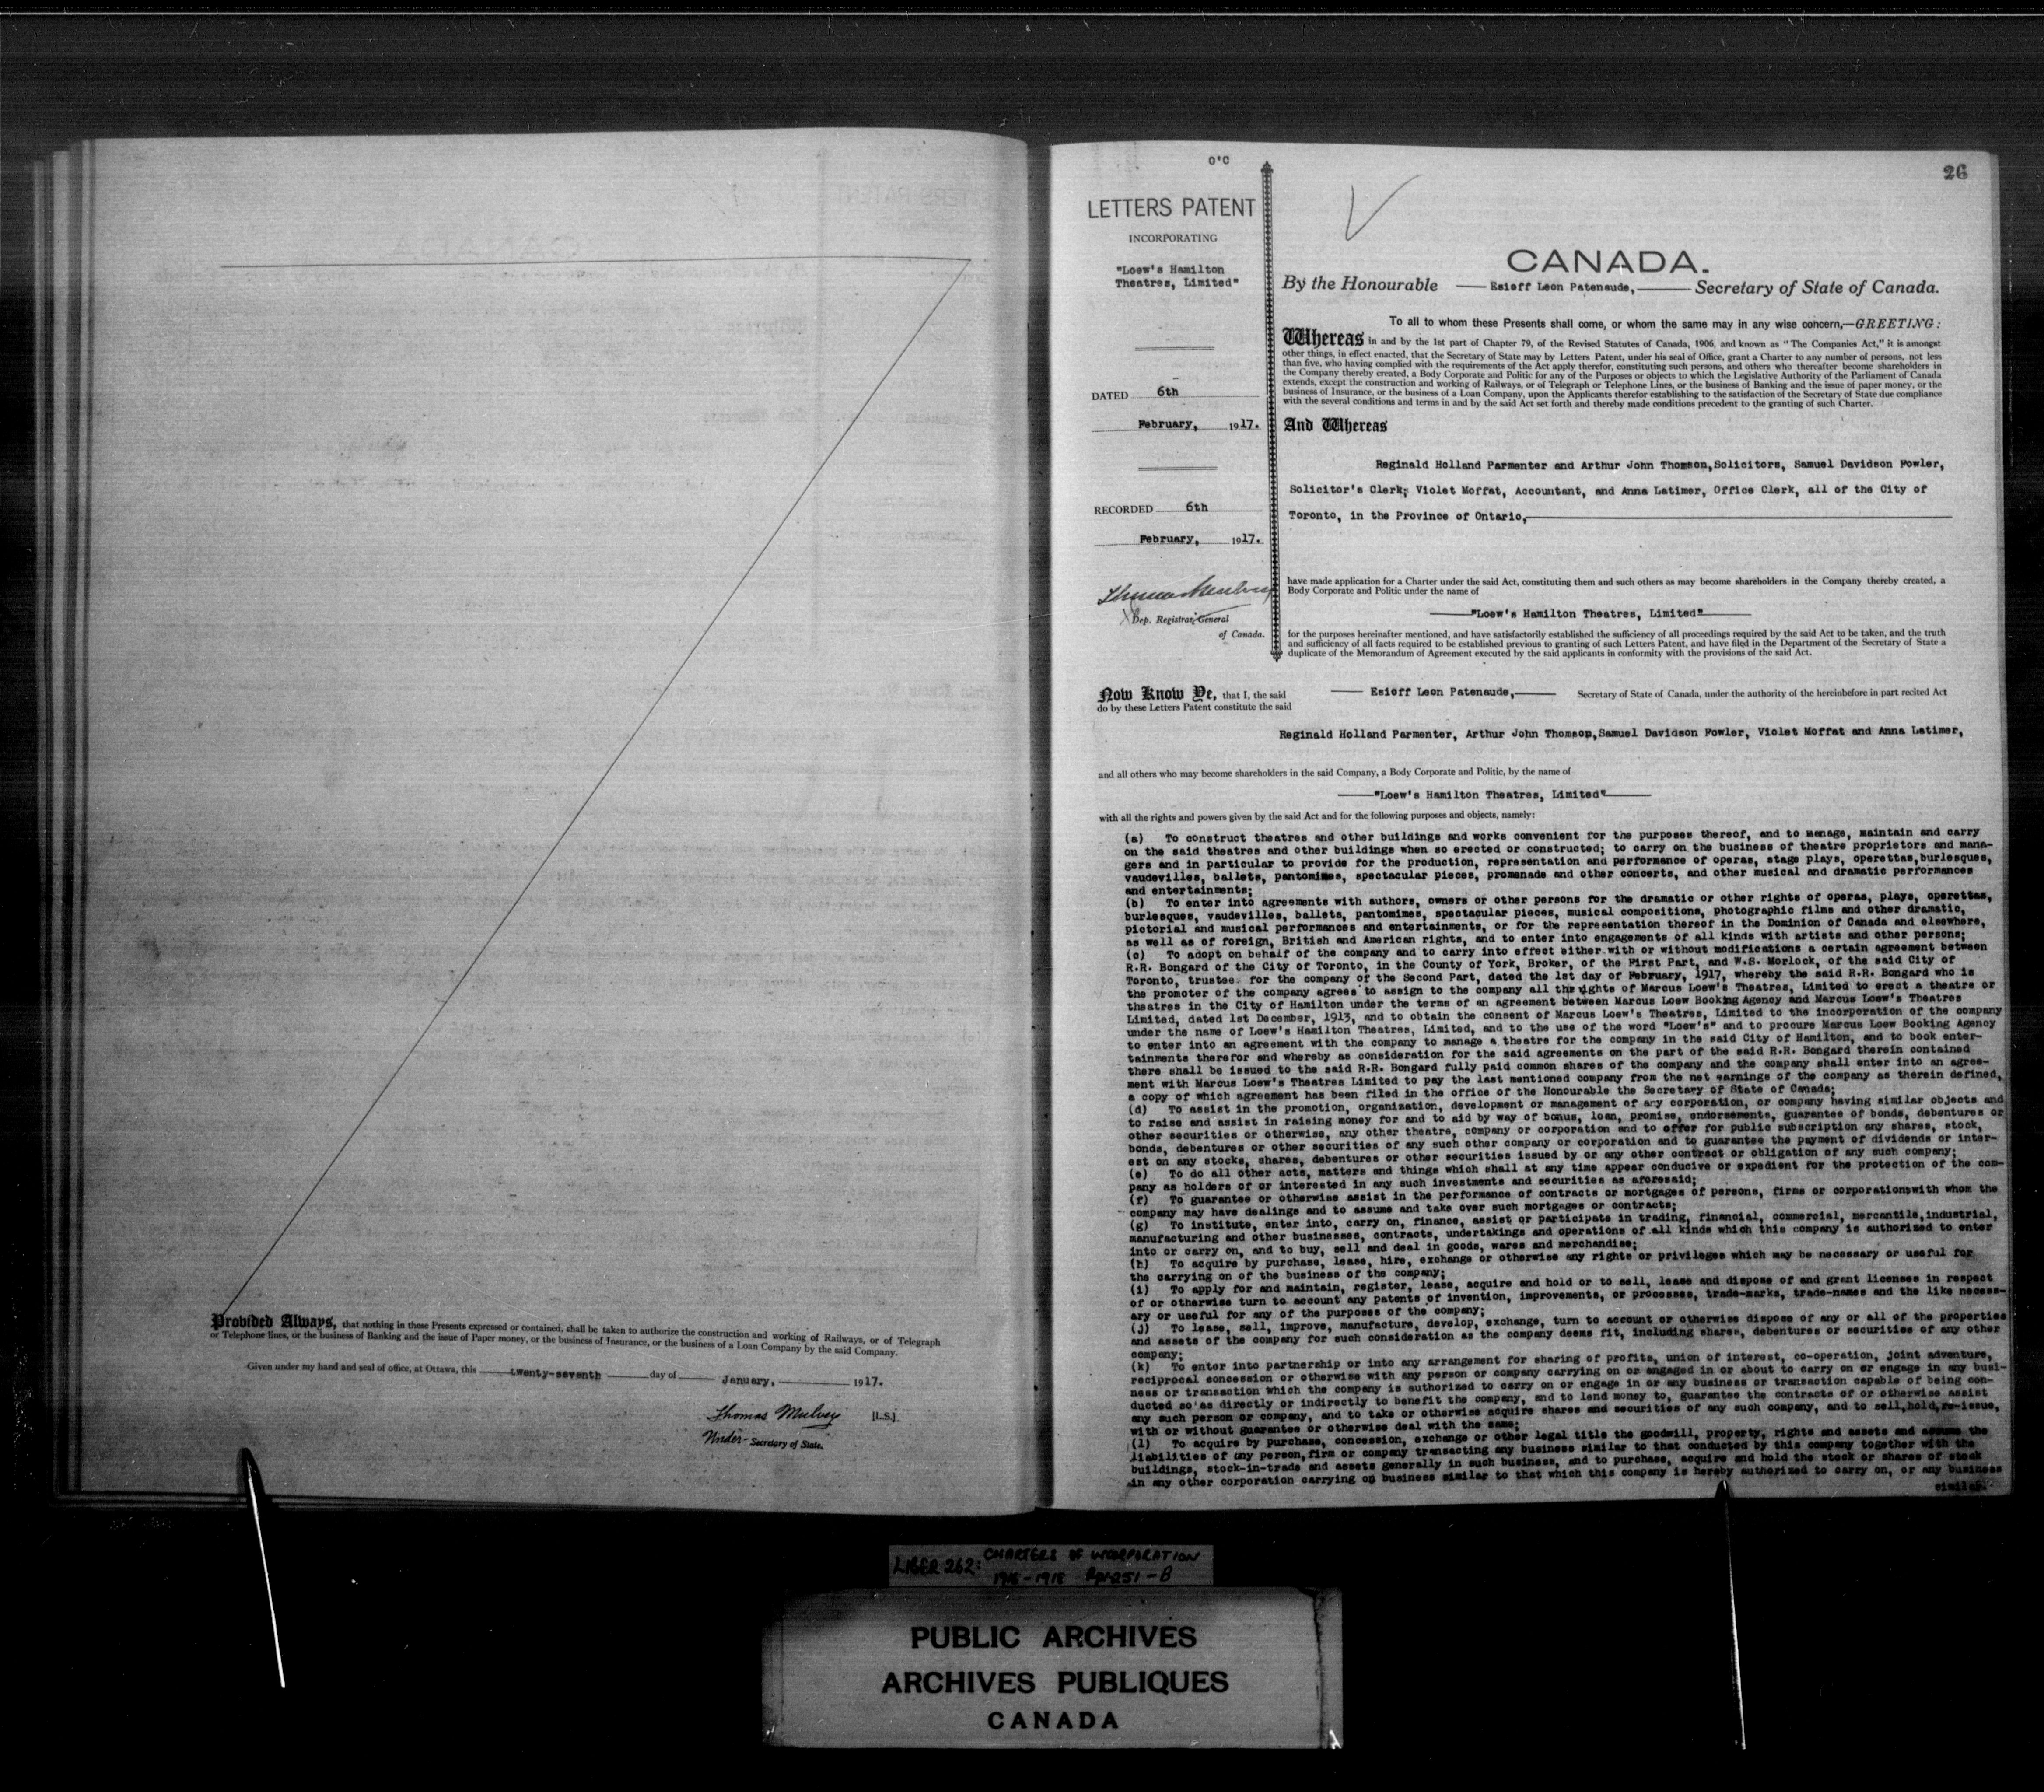 Provided Always, that nothing in these Presents expressed or contained, shall be taken to authorize the construction and working of Railways, or of Telegraph
or Telephone lines, or the business of Banking and the issue of Paper money, or the business of Insurance, or the business of a Loan Company by the said Company.
Given under my hand and seal of office, at Ottawa, this twenty-seventh day of January, 1917.
Thomas Mulvey [L.S.]
Under- Secretary of State.
O'C
26
LETTERS PATENT
INCORPORATING
"Loew's Hamilton
Theatres, Limited"
DATED 6th
February, 1917.
RECORDED 6th
February, 1917.
Thomas Mulvey
Dep. Registrar General
of Canada.
CANADA.
By the Honourable Esioff Leon Patenaude, Secretary of State of Canada.
To all to whom these Presents shall come, or whom the same may in any wise concern,—GREETING:
Whereas in and by the 1st part of Chapter 79, of the Revised Statutes of Canada, 1906, and known as "The Companies Act," it is amongst
other things, in effect enacted, that the Secretary of State may by Letters Patent, under his seal of Office, grant a Charter to any number of persons, not less
than five, who having complied with the requirements of the Act apply therefor, constituting such persons, and others who thereafter become shareholders in
the Company thereby created, a Body Corporate and Politic for any of the Purposes or objects to which the Legislative Authority of the Parliament of Canada
extends, except the construction and working of Railways, or of Telegraph or Telephone Lines, or the business of Banking and the issue of paper money, or the
business of Insurance, or the business of a Loan Company, upon the Applicants therefor establishing to the satisfaction of the Secretary of State due compliance
with the several conditions and terms in and by the said Act set forth and thereby made conditions precedent to the granting of such Charter.
And Whereas
Reginald Holland Parmenter and Arthur John Thomson, Solicitors, Samuel Davidson Fowler,
Solicitor's Clerk; Violet Moffat, Accountant, and Anna Latimer, Office Clerk, all of the City of
Toronto, in the Province of Ontario,
have made application for a Charter under the said Act, constituting them and such others as may become shareholders in the Company thereby created, a
Body Corporate and Politic under the name of
"Loew's Hamilton Theatres, Limited"
for the purposes hereinafter mentioned, and have satisfactorily established the sufficiency of all proceedings required by the said Act to be taken, and the truth
and sufficiency of all facts required to be established previous to granting of such Letters Patent, and have filed in the Department of the Secretary of State a
duplicate of the Memorandum of Agreement executed by the said applicants in conformity with the provisions of the said Act.
Now Know Ye, that I, the said Esioff Leon Patenaude, Secretary of State of Canada, under the authority of the hereinbefore in part recited Act
do by these Letters Patent constitute the said
Reginald Holland Parmenter, Arthur John Thomson, Samuel Davidson Fowler, Violet Moffat and Anna Latimer,
and all others who may become shareholders in the said Company, a Body Corporate and Politic, by the name of
"Loew's Hamilton Theatres, Limited"
with all the rights and powers given by the said Act and for the following purposes and objects, namely:
(a) To construct theatres and other buildings and works convenient for the purposes thereof, and to manage, maintain and carry
on the said theatres and other buildings when so erected or constructed; to carry on the business of theatre proprietors and mana-
gers and in particular to provide for the production, representation and performance of operas, stage plays, operettas, burlesques,
vaudevilles, ballets, pantomimes, spectacular pieces, promenade and other concerts, and other musical and dramatic performances
and entertainments;
(b) To enter into agreements with authors, owners or other persons for the dramatic or other rights of operas, plays, operettas,
burlesques, vaudevilles, ballets, pantomimes, spectacular pieces, musical compositions, photographic films and other dramatic,
pictorial and musical performances and entertainments, or for the representation thereof in the Dominion of Canada and elsewhere,
as well as of foreign, British and American rights, and to enter into engagements of all kinds with artists and other persons;
(c) To adopt on behalf of the company and to carry into effect either with or without modifications a certain agreement between
R.R. Bongard of the City of Toronto, in the County of York, Broker, of the First Part, and W.S. Morlock, of the said City of
Toronto, trustee for the company of the Second Part, dated the 1st day of February, 1917, whereby the said R.R. Bongard who is
the promoter of the company agrees to assign to the company all the rights of Marcus Loew's Theatres, Limited to erect a theatre or
theatres in the City of Hamilton under the terms of an agreement between Marcus Loew Booking Agency and Marcus Loew's Theatres
Limited, dated 1st December, 1913, and to obtain the consent of Marcus Loew's Theatres, Limited to the incorporation of the company
under the name of Loew's Hamilton Theatres, Limited, and to the use of the word "Loew's" and to procure Marcus Loew Booking Agency
to enter into an agreement with the company to manage a theatre for the company in the said City of Hamilton, and to book enter-
tainments therefor and whereby as consideration for the said agreements on the part of the said R.R. Bongard therein contained
there shall be issued to the said R.R. Bongard fully paid common shares of the company and the company shall enter into an agree-
ment with Marcus Loew's Theatres Limited to pay the last mentioned company from the net earnings of the company as therein defined,
a copy of which agreement has been filed in the office of the Honourable the Secretary of State of Canada;
(d) To assist in the promotion, organization, development or management of any corporation, or company having similar objects and
to raise and assist in raising money for and to aid by way of bonus, loan, promise, endorsements, guarantee of bonds, debentures or
other securities or otherwise, any other theatre, company or corporation and to offer for public subscription any shares, stock,
bonds, debentures or other securities of any such other company or corporation and to guarantee the payment of dividends or inter-
est on any stocks, shares, debentures or other securities issued by or any other contract or obligation of any such company;
(e) To do all other acts, matters and things which shall at any time appear conducive or expedient for the protection of the com-
pany as holders of or interested in any such investments and securities as aforesaid;
(f) To guarantee or otherwise assist in the performance of contracts or mortgages of persons, firms or corporations with whom the
company may have dealings and to assume and take over such mortgages or contracts;
(g) To institute, enter into, carry on, finance, assist or participate in trading, financial, commercial, mercantile, industrial,
manufacturing and other businesses, contracts, undertakings and operations of all kinds which this company is authorized to enter
into or carry on, and to buy, sell and deal in goods, wares and merchandise;
(h) To acquire by purchase, lease, hire, exchange or otherwise any rights or privileges which may be necessary or useful for
the carrying on of the business of the company;
(i) To apply for and maintain, register, lease, acquire and hold or to sell, lease and dispose of and grant licenses in respect
of or otherwise turn to account any patents of invention, improvements, or processes, trade-marks, trade-names and the like necess-
ary or useful for any of the purposes of the company;
(j) To lease, sell, improve, manufacture, develop, exchange, turn to account or otherwise dispose of any or all of the properties
and assets of the company for such consideration as the company deems fit, including shares, debentures or securities of any other
company;
(k) To enter into partnership or into any arrangement for sharing of profits, union of interest, co-operation, joint adventure,
reciprocal concession or otherwise with any person or company carrying on or engaged in or about to carry on or engage in any busi-
ness or transaction which the company is authorized to carry on or engage in or any business or transaction capable of being con-
ducted so as directly or indirectly to benefit the company, and to lend money to, guarantee the contracts of or otherwise assist
any such person or company, and to take or otherwise acquire shares and securities of any such company, and to sell, hold, re-issue,
with or without guarantee or otherwise deal with the same;
(l) To acquire by purchase, concession, exchange or other legal title the goodwill, property, rights and assets and assume the
liabilities of any person, firm or company transacting any business similar to that conducted by this company together with the
buildings, stock-in-trade and assets generally in such business, and to purchase, acquire and hold the stock or shares of stock
in any other corporation carrying on business similar to that which this company is hereby authorized to carry on, or any business
similar
LIBER 262: CHARTERS OF INCORPORATION
1916-1918 251-B
PUBLIC ARCHIVES
ARCHIVES PUBLIQUES
CANADA